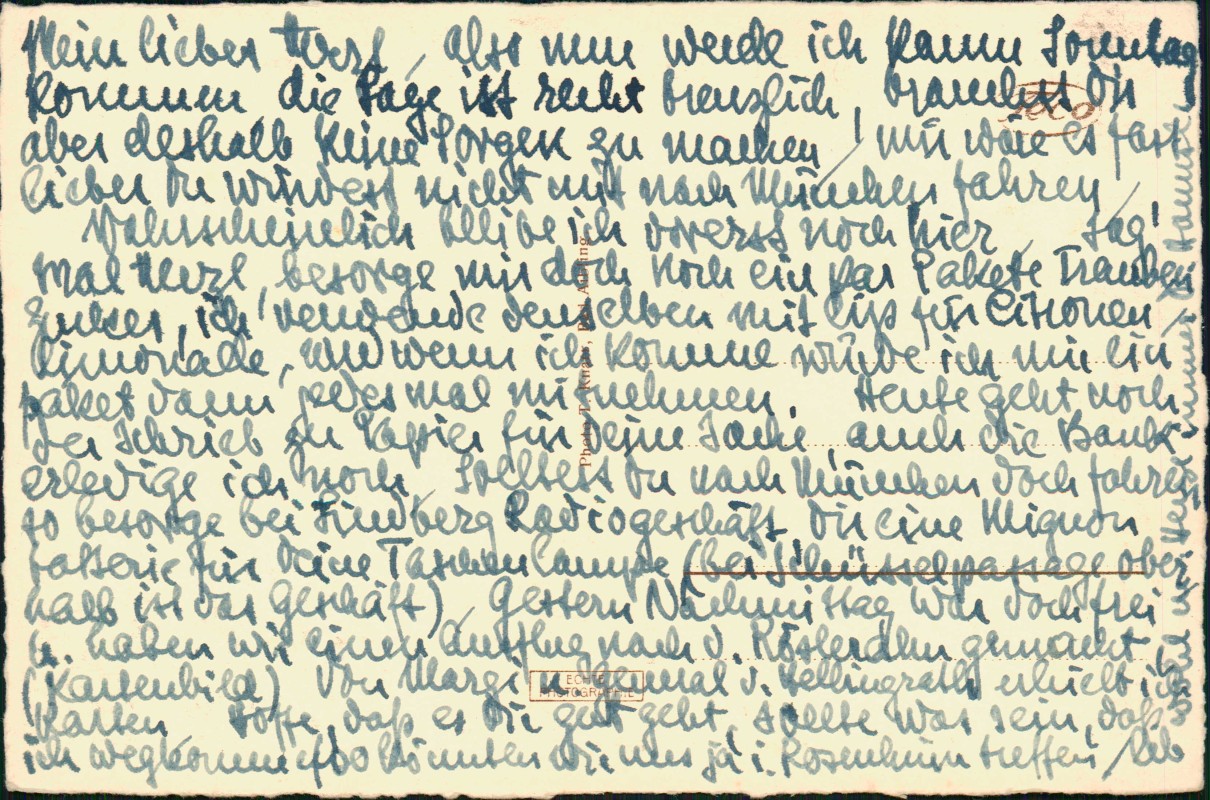 Mein lieber Merzl, also nun werde ich kaum Sonntag
kommen, die Lage ist recht brenzlich, brauchst Dir
aber deshalb keine Sorgen zu machen, mir wäre es fast
lieber Du würdest nicht mit nach München fahren,
Wahrscheinlich bleibe ich vorerst noch hier, sag'
mal Merzl, besorge mir doch noch ein par Pakete Trauben
zucker, ich verwende denselben mit Eis für Citronen
limonade, und wenn ich komme würde ich mir ein
paket dann jedes mal mitnehmen. Heute geht noch
der Schrieb zu Papier für Deine Sache, auch die Bank
erledige ich noch, Solltest Du nach München doch fahren
so besorge bei Lindberg Radiogeschäft Dir eine Mignon
batterie für Deine Taschenlampe (bei Schüsselpassage ober
halb ist das Geschäft), Gestern Nachmittag war doch frei
u. haben wir einen Ausflug nach d. gemacht
(Kartenbild) Von Margi u. v. Hellingrath erhielt ich
Karten, Hoffe, daß es Dir gut geht, sollte was sein, daß
ich wegkomme, so könnten wir uns ja i. Rosenheim treffen,
Photo T. Knar, Aibling
ECHTE
PHOTOGRAPHIE